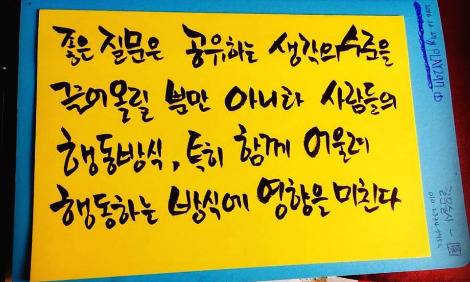 좋은 질문은 공유하는 생각의 수준을
끌어올릴 뿐만 아니라 사람들의
행동방식, 특히 함께 어울려
행동하는 방식에 영향을 미친다